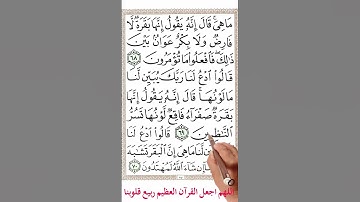 مَا هِيَ ۚ قَالَ إِنَّهُ يَقُولُ إِنَّهَا بَقَرَةٌ لَّا
فَارِضٌ وَلَا بِكْرٌ عَوَانٌ بَيْنَ
ذَٰلِكَ ۖ فَافْعَلُوا مَا تُؤْمَرُونَ ٦٨
قَالُوا ادْعُ لَنَا رَبَّكَ يُبَيِّن لَّنَا
مَا لَوْنُهَا ۚ قَالَ إِنَّهُ يَقُولُ إِنَّهَا
بَقَرَةٌ صَفْرَاءُ فَاقِعٌ لَّوْنُهَا تَسُرُّ
النَّاظِرِينَ ٦٩ قَالُوا ادْعُ لَنَا
يُبَيِّن لَّنَا مَا هِيَ إِنَّ الْبَقَرَ تَشَابَهَ
إِن شَاءَ اللَّهُ لَمُهْتَدُونَ ٧٠
اللهم اجعل القرآن العظيم ربيع قلوبنا